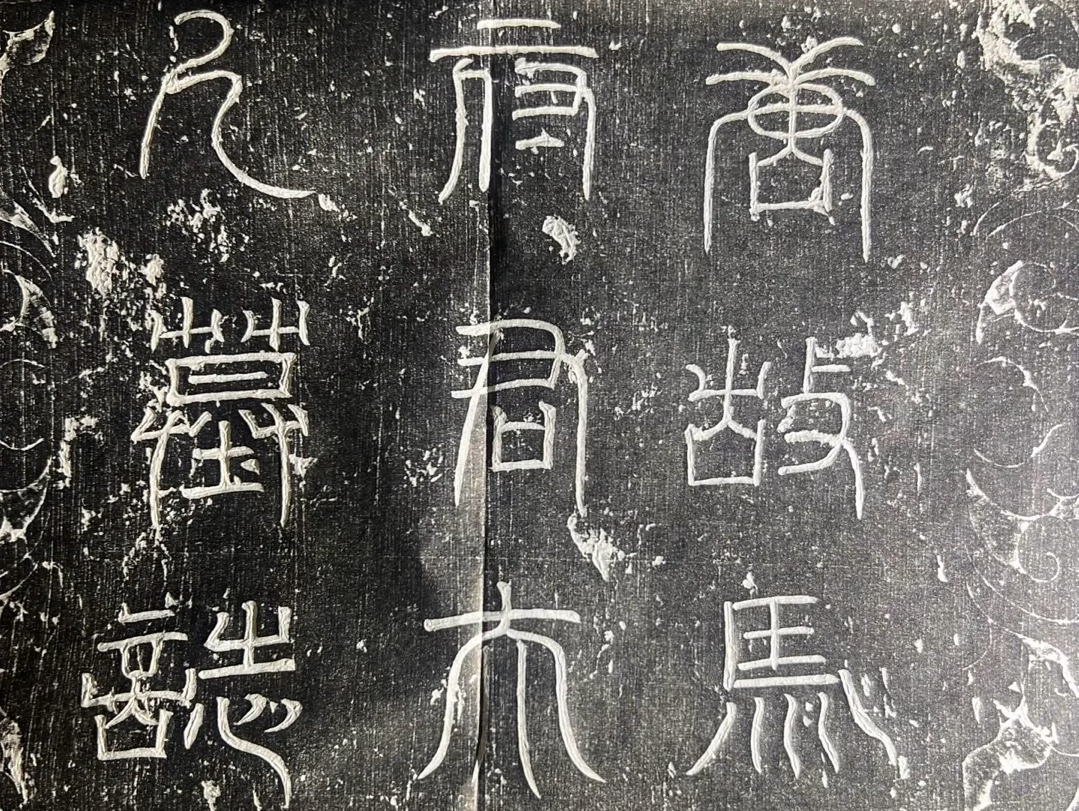 唐故馬
府君夫
人墓誌